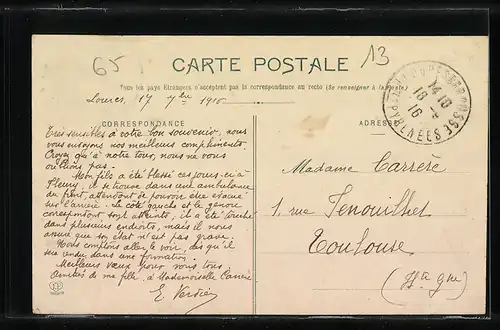 65
13
CARTE POSTALE
Tous les pays Etrangers n'acceptent pas la correspondance au recto (Se renseigner à la Poste)
Loures, 17 7bre 1916
CORRESPONDANCE
ADRESSE
Très sensibles à votre bon souvenir, nous
vous envoyons nos meilleurs compliments.
Croyez qu'à notre tour, nous ne vous
oublions pas.
Mon fils a été blessé ces jours-ci à
Fleury, il se trouve dans une ambulance
du front, attendant de pouvoir être évacué
sur l'arrière. Le côté gauche et le genou
correspondant sont atteints, il a été touché
dans plusieurs endroits, mais il nous
assure que son état n'est pas grave.
Nous comptons aller le voir dès qu'il
sera rendu dans une formation.
Meilleurs vœux pour vous tous
Amitiés de ma fille, à Mademoiselle Carrère
E. Verdier
Madame Carrère
1, rue Fenouillet
Toulouse
(Hte Gne)
14 10
18 -9
16